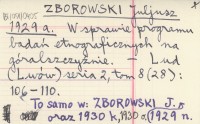 ZBOROWSKI Juljusz
1929 a. W sprawie programu
badań etnograficznych na
góralszczyźnie. - Lud
(Lwów) seria 2, tom 8 (28):
106-110.
To samo w: ZBOROWSKI J.
oraz 1930 k, 1930 1929 n.